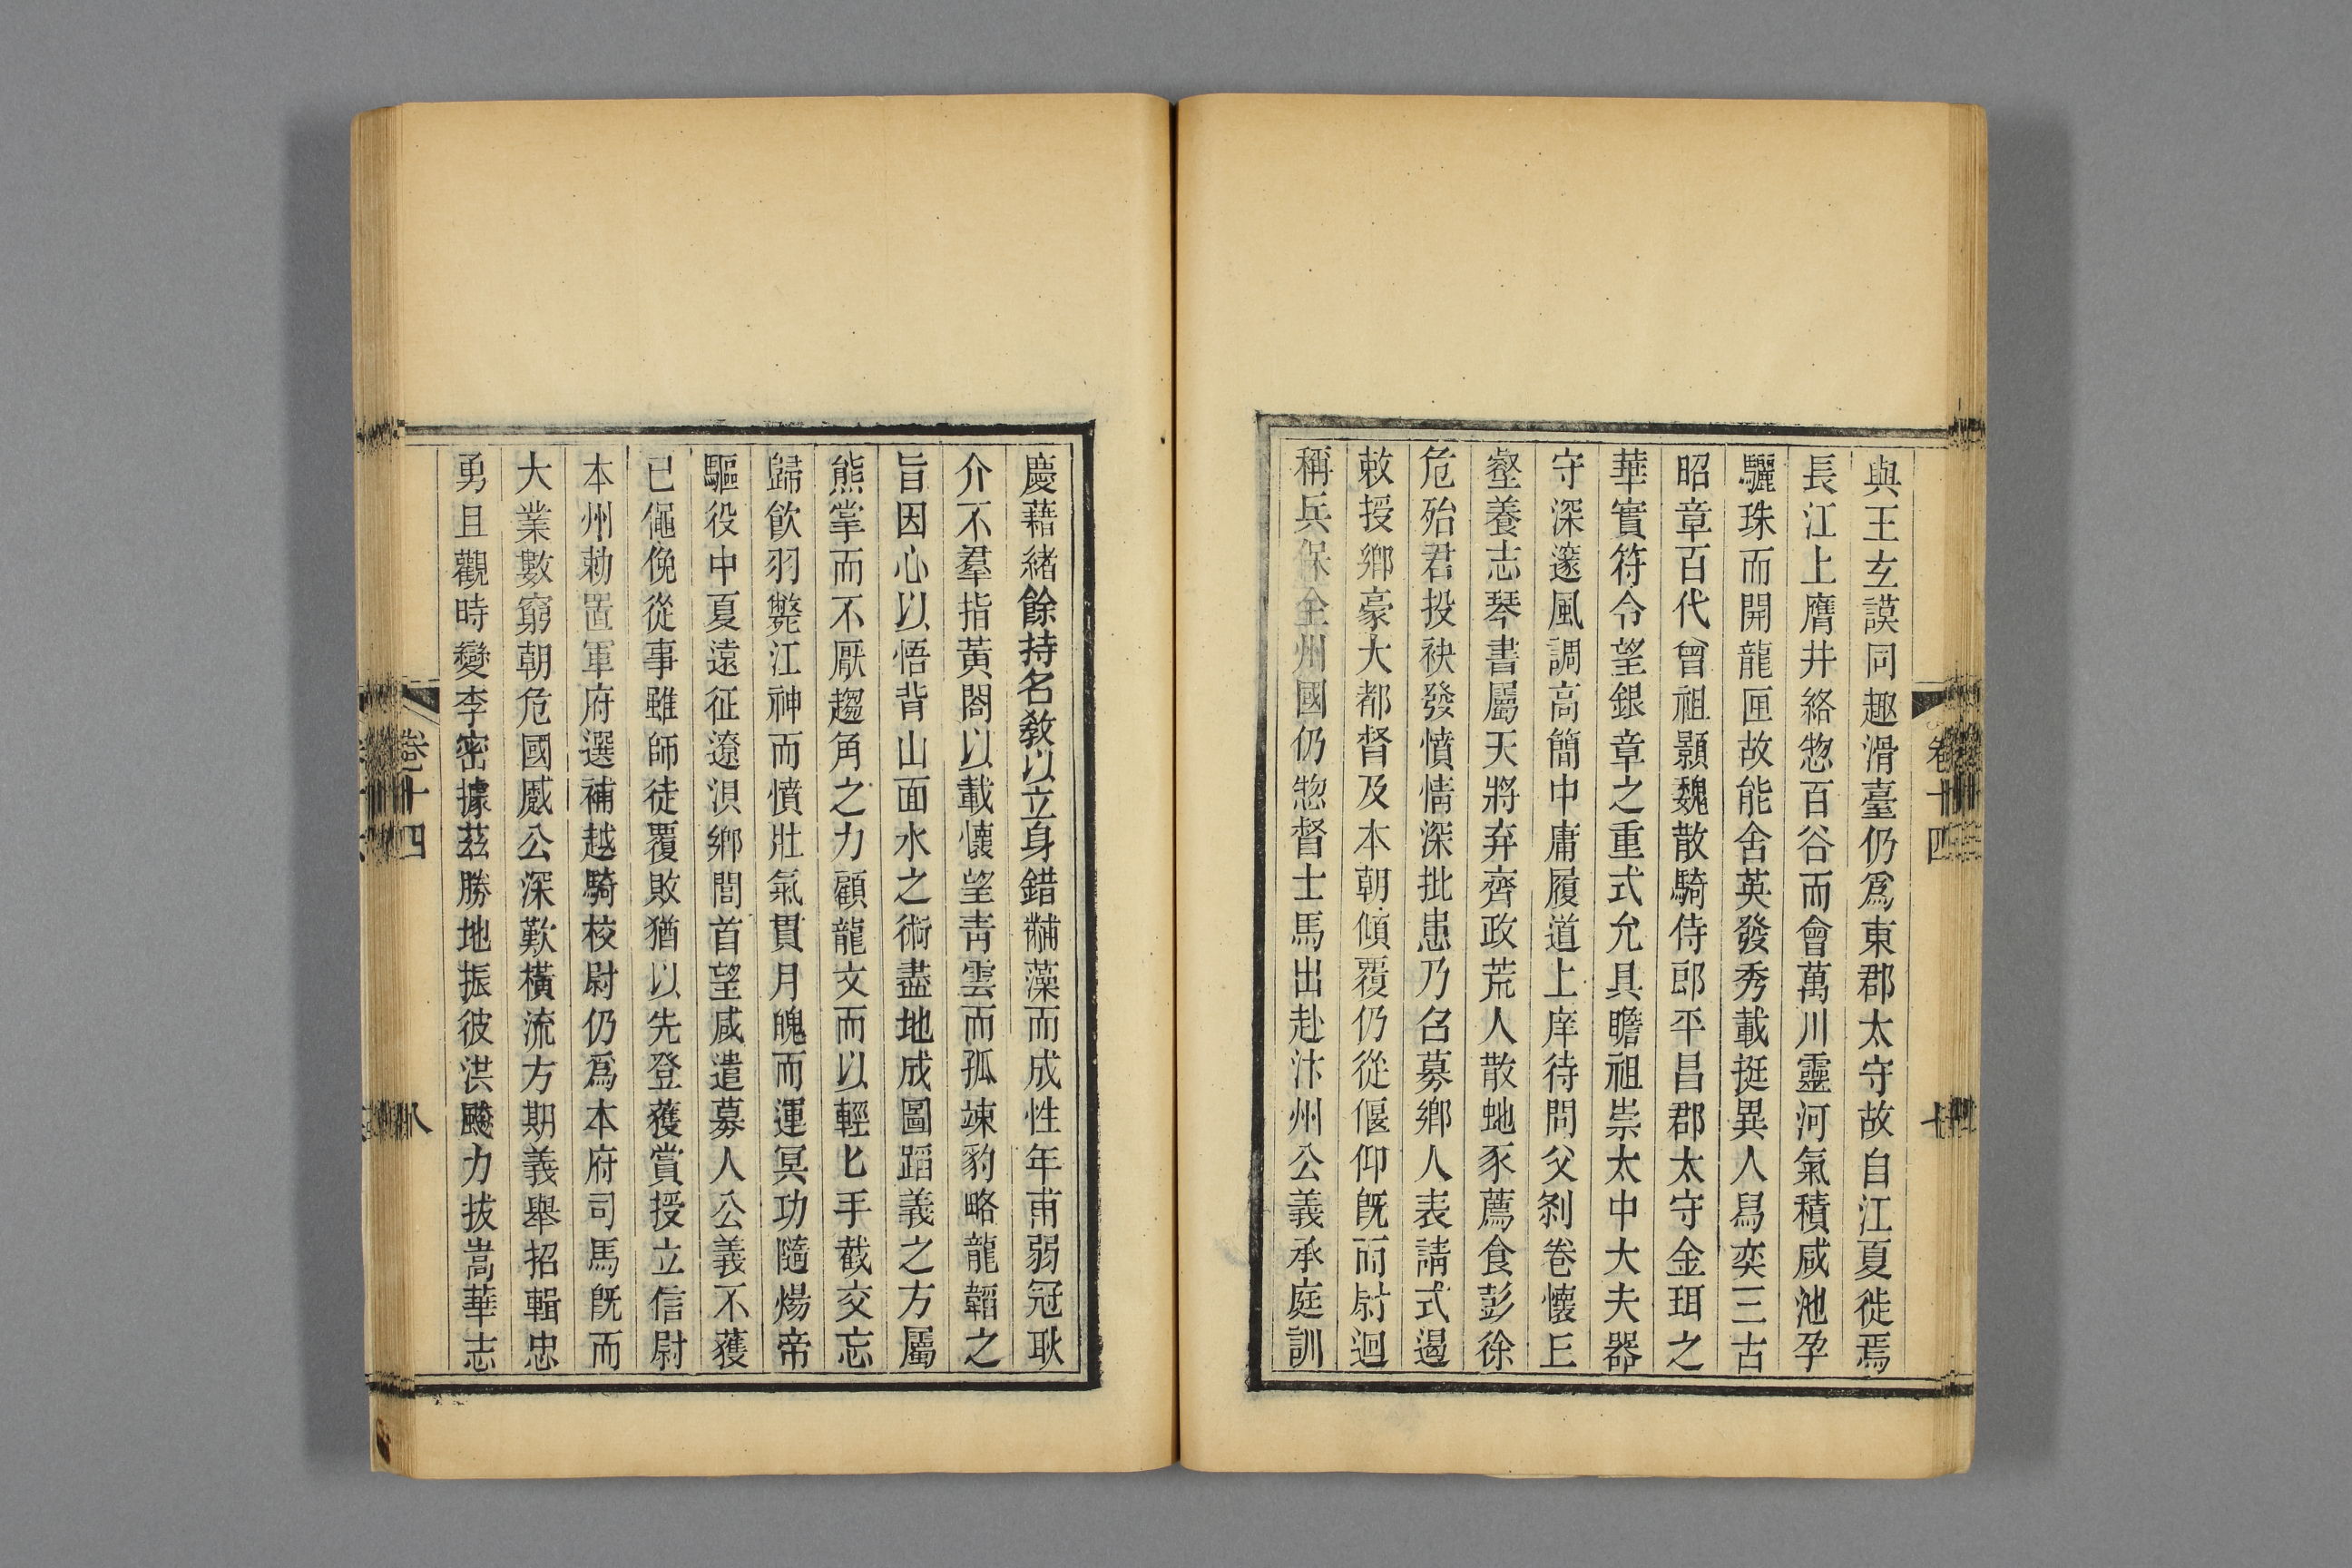 與王玄謨同趣滑臺仍爲東郡太守故自江夏徙焉
長江上膺井絡惣百谷而會萬川靈河氣積咸池孕
驪珠而開龍匣故能舍英發秀載挺異人舄奕三古
昭章百代曾祖顥魏散騎侍郎平昌郡太守金珥之
華實符令望銀章之重式允具瞻祖崇太中大夫器
守深邃風調高簡中庸履道上庠待問父剎卷懷丘
壑養志琴書屬天將弃齊政荒人散虵豕薦食彭徐
危殆君投袂發憤情深批患乃召募鄉人表請式遏
敕授鄉豪大都督及本朝傾覆仍從偃仰既而尉迥
稱兵保全州國仍惣督士馬出赴汴州公義承庭訓
慶藉緒餘持名教以立身錯黼藻而成性年甫弱冠耿
介不羣指黃閤以載懷望青雲而孤竦豹略龍韜之
旨因心以悟背山面水之術盡地成圖蹈義之方屬
熊掌而不厭趨角之力顧龍文而以輕匕手截交忘
歸飲羽斃江神而憤壯氣貫月魄而運冥功隨煬帝
驅役中夏遠征遼浿鄉閭首望咸遣募人公義不獲
已僶俛從事雖師徒覆敗猶以先登獲賞授立信尉
本州勅置軍府選補越騎校尉仍爲本府司馬既而
大業數窮朝危國慼公深歎橫流方期義舉招輯忠
勇且觀時變李密據茲勝地振彼洪飈力拔嵩華志
卷十四
八
卷十四
七